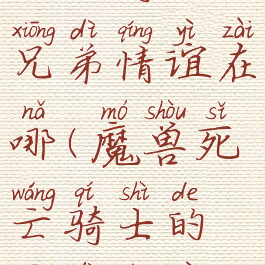 xiōng dì qíng yì zài
兄弟情谊在
nǎ mó shòu sǐ
哪(魔兽死
wáng qí shì de
亡骑士的